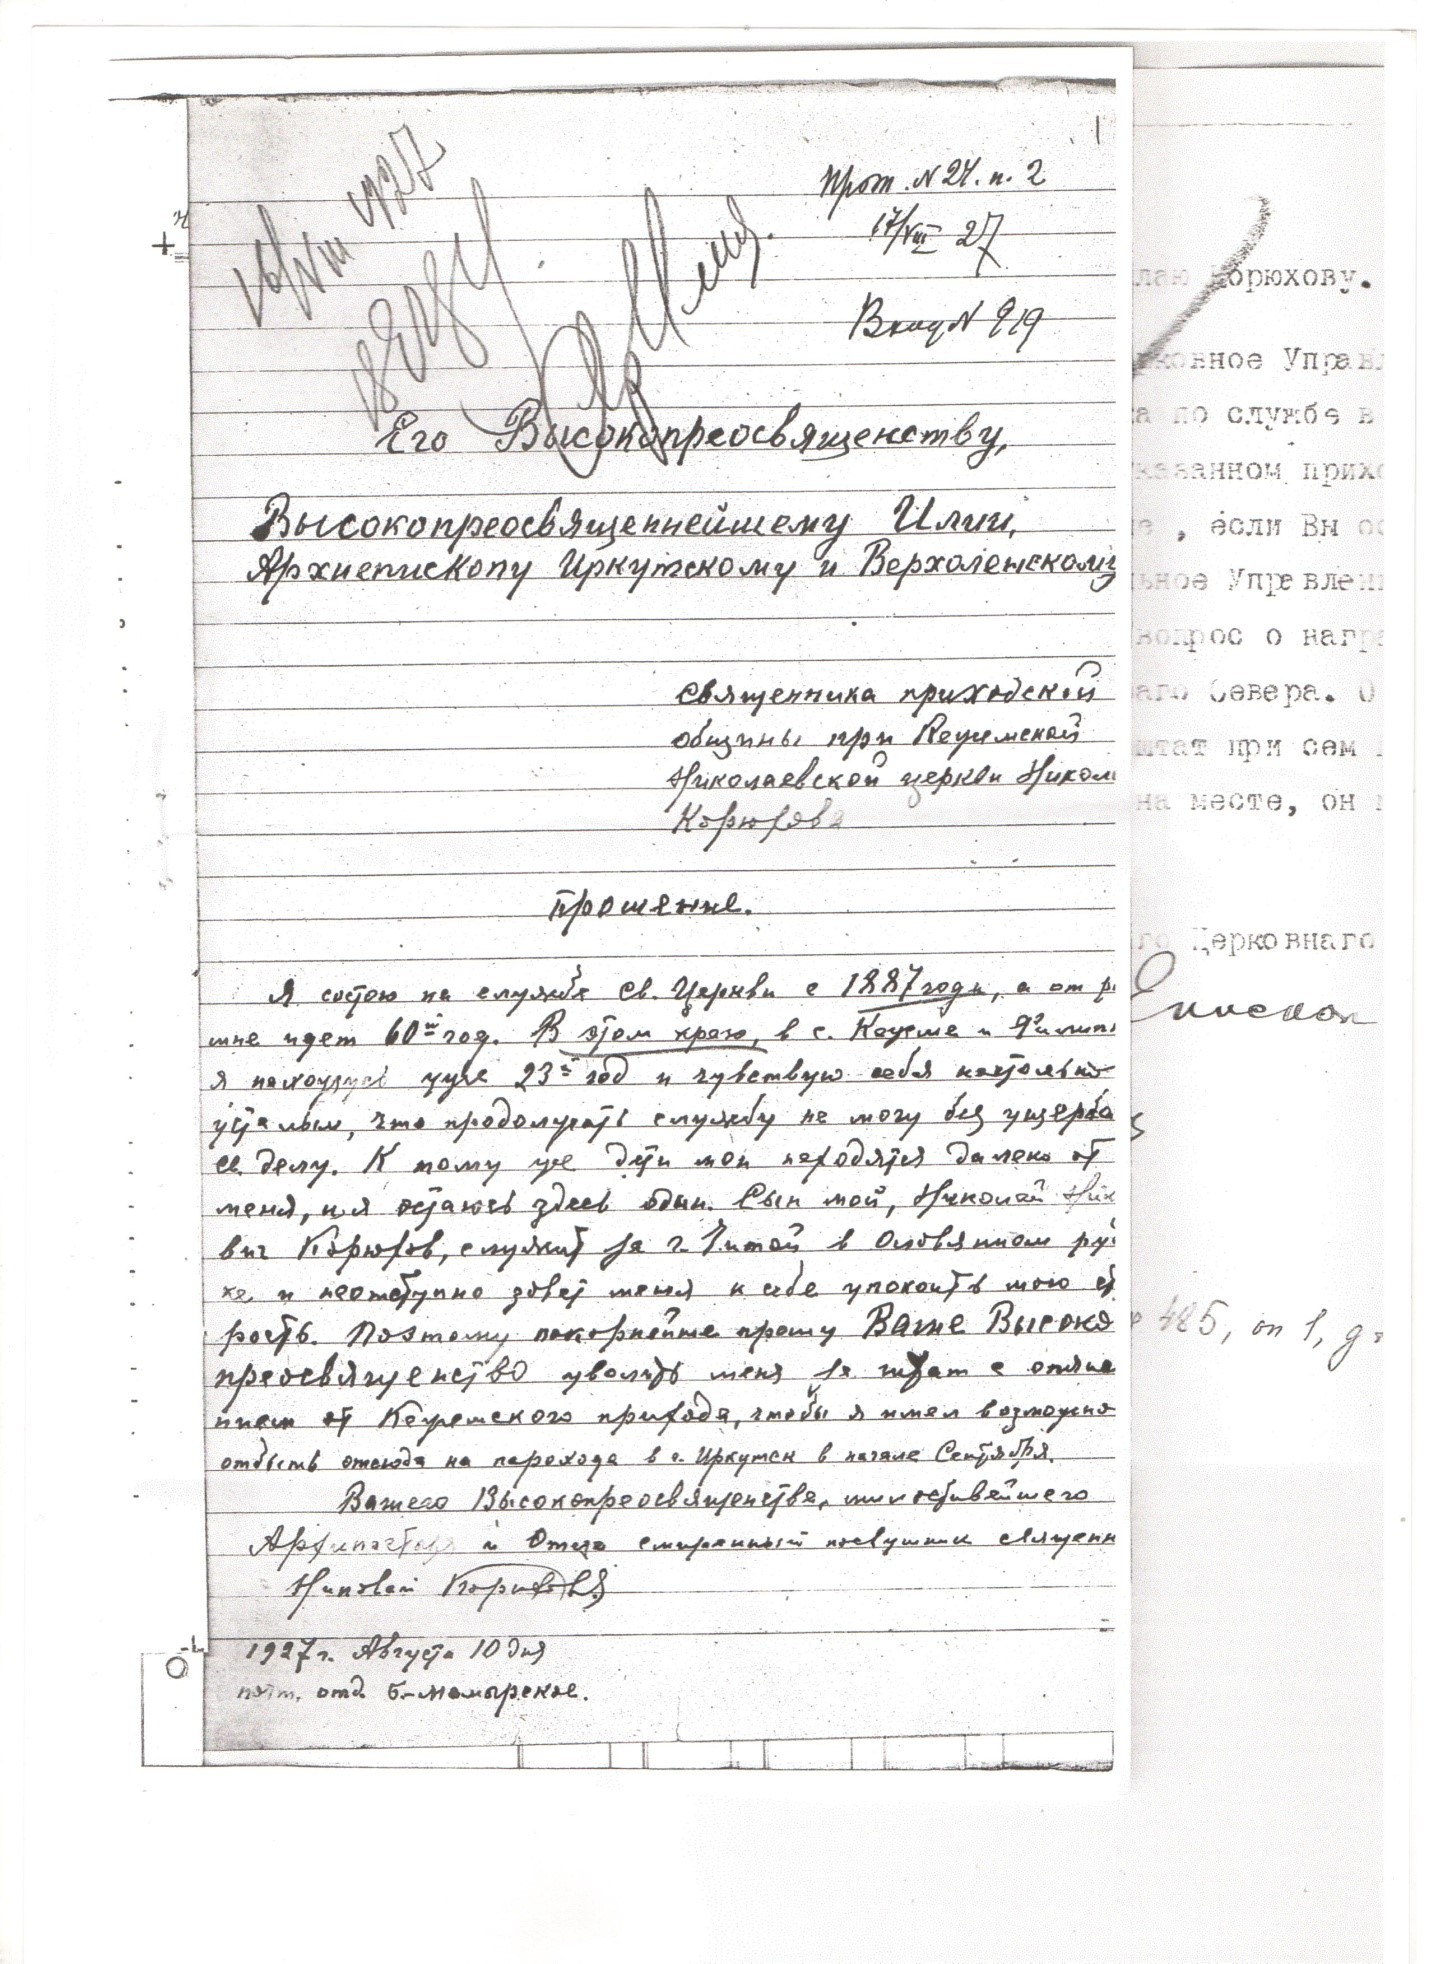 1
16/VIII 1927
Прот. N 24. п. 2
17/VIII 27
В ЕОЦУ.
Вход N 919
Его Высокопреосвященству,
Высокопреосвященнейшему Илии,
Архиепископу Иркутскому и Верхоленскому
священника приходской
общины при Кежемской
Николаевской церкви Никол
Корюхова
Прошение.
Я состою на службе св. Церкви с 1887 года, а от р
мне идет 60й год. В этом краю, в с. Кежме и Филипп
я нахожусь уже 23й год и чувствую себя настолько
усталым, что продолжать службу не могу без ущерба
св. делу. К тому же дети мои находятся далеко от
меня, и я остаюсь здесь один. Сын мой, Николай Ник
вич Корюхов, служит за г. Читой в Оловянном руд
ке и неотступно зовет меня к себе упокоить мою ст
рость. Поэтому покорнейше прошу Ваше Высоко
преосвященство уволить меня за штат с отчис
нием от Кежемского прихода, чтобы я имел возможно
отбыть отсюда на пароходе в г. Иркутск в начале Сентября.
Вашего Высокопреосвященства, милостивейшего
Архипастыря и Отца смиренный послушник священн
Николай Корюхов
1927 г. Августа 10 дня
почт. отд. Б-Мамырское.
лаю Корюхову.
рковное Управл
а по службе в
казанном прихо
е , если Вы ос
ьное Управлени
вопрос о награ
аго Севера. О
штат при сем
на месте, он
го Церковнаго
Епископ
485, оп 1, д